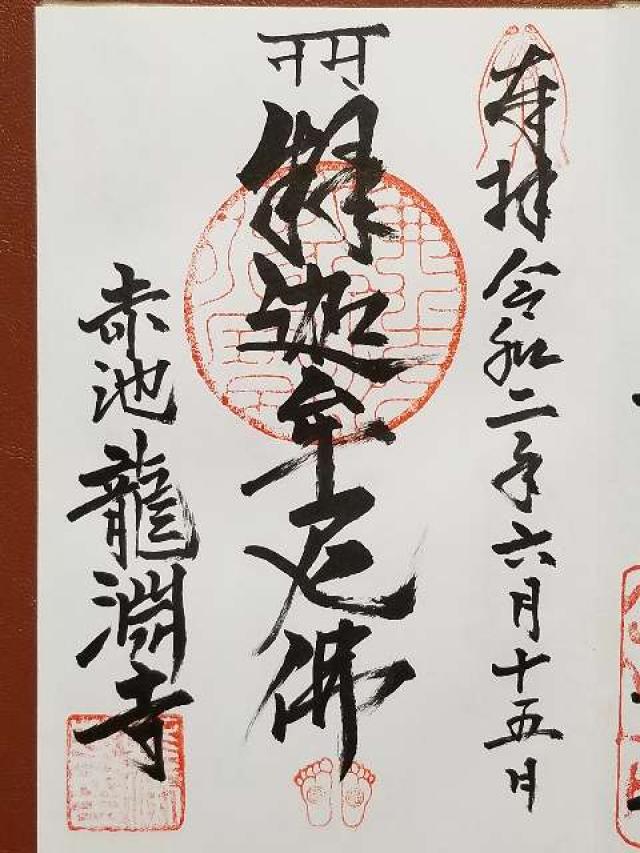 奉拝 令和二年六月十五日
नमः
釋迦牟尼佛
赤池 龍淵寺